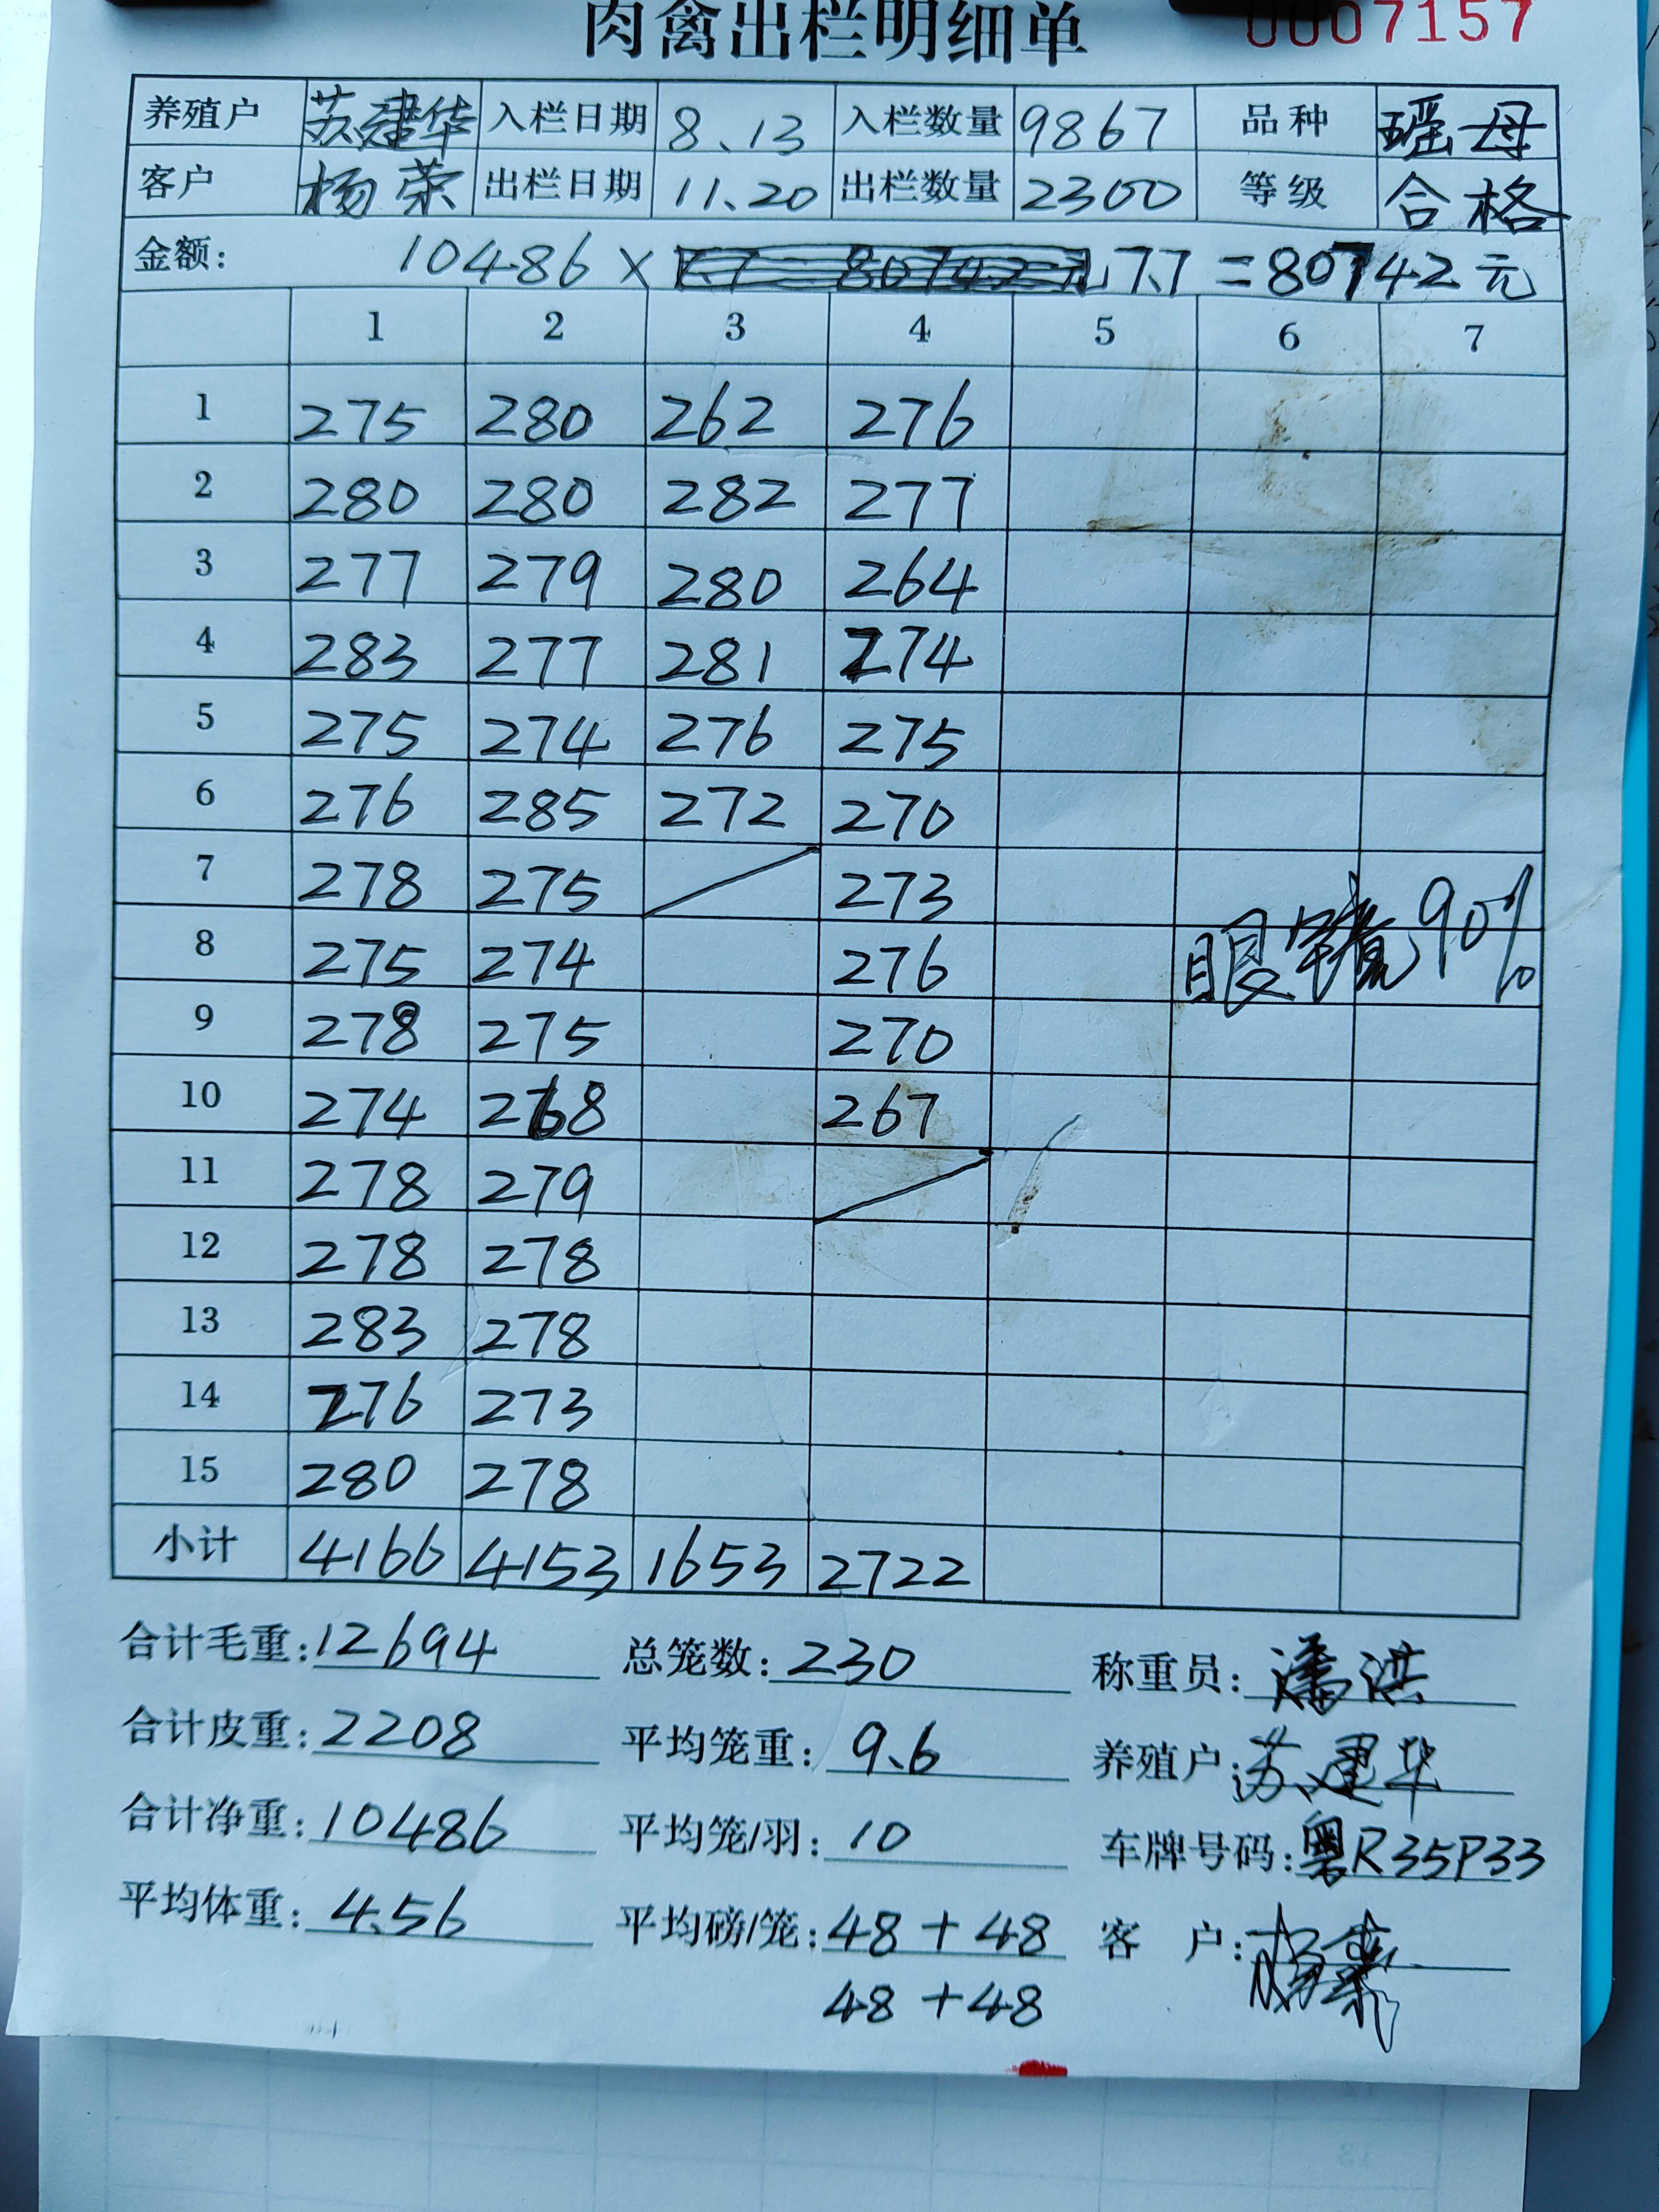 肉禽出栏明细单 0007157
养殖户 苏建华 入栏日期 8.13 入栏数量 9867 品种 瑶母
客户 杨荣 出栏日期 11.20 出栏数量 2300 等级 合格
金额: 10486 × 7.7 = 80742元
1 2 3 4 5 6 7
1 275 280 262 276
2 280 280 282 277
3 277 279 280 264
4 283 277 281 274
5 275 274 276 275
6 276 285 272 270
7 278 275 273
8 275 274 276 眼镜90%
9 278 275 270
10 274 268 267
11 278 279
12 278 278
13 283 278
14 276 273
15 280 278
小计 4166 4153 1653 2722
合计毛重: 12694 总笼数: 230 称重员: 潘洪
合计皮重: 2208 平均笼重: 9.6 养殖户: 苏建华
合计净重: 10486 平均笼/羽: 10 车牌号码: 粤R35P33
平均体重: 4.56 平均磅/笼: 48+48 客 户: 杨荣
48+48